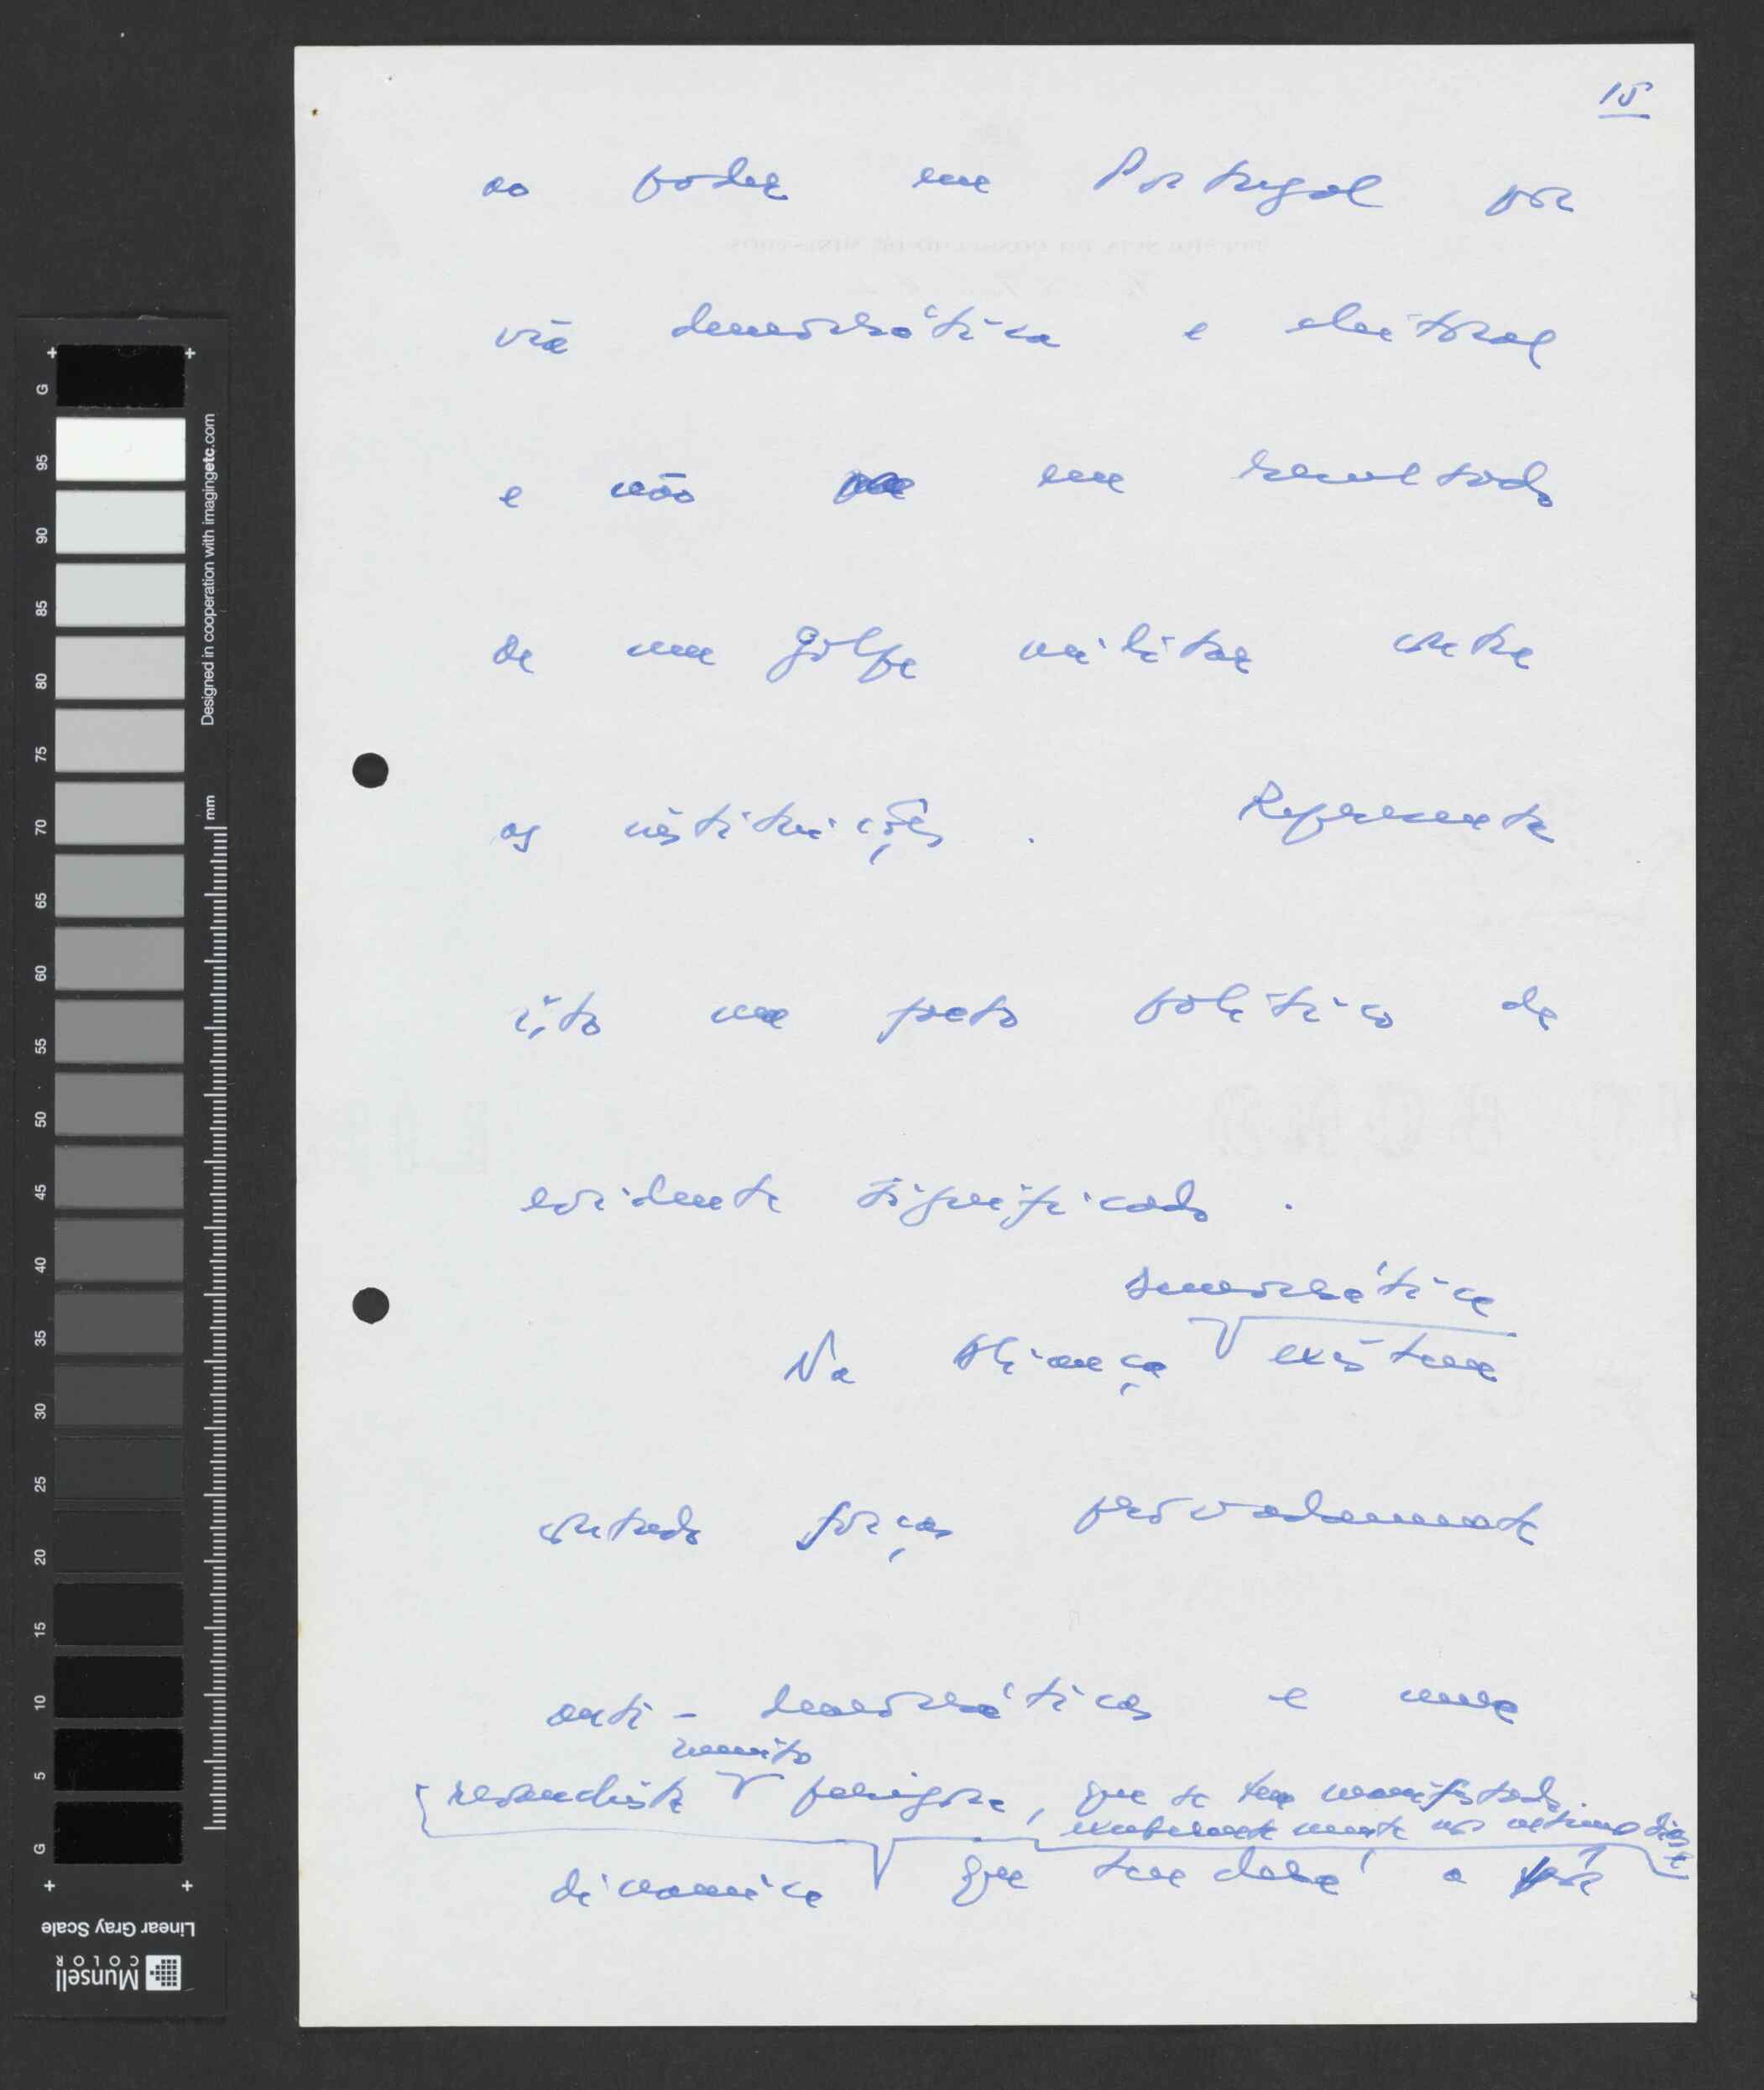 15
ao poder em Portugal por
via democrática e eleitoral
e não em resultado
de um golpe militar contra
as instituições. Representa
isto um facto político de
evidente significado.
democrática
Na Aliança existem
contudo forças provadamente
anti-democráticas e uma
muito
revanchista perigosa, que se tem manifestado
exuberantemente nos últimos dias e
dinamica que tenderá a pôr
Designed in cooperation with imagingetc.com
mm
G 95 90 85 80 75 70 65 60 55 50 45 40 35 30 25 20 15 10 5 G
Linear Gray Scale
Munsell
COLOR